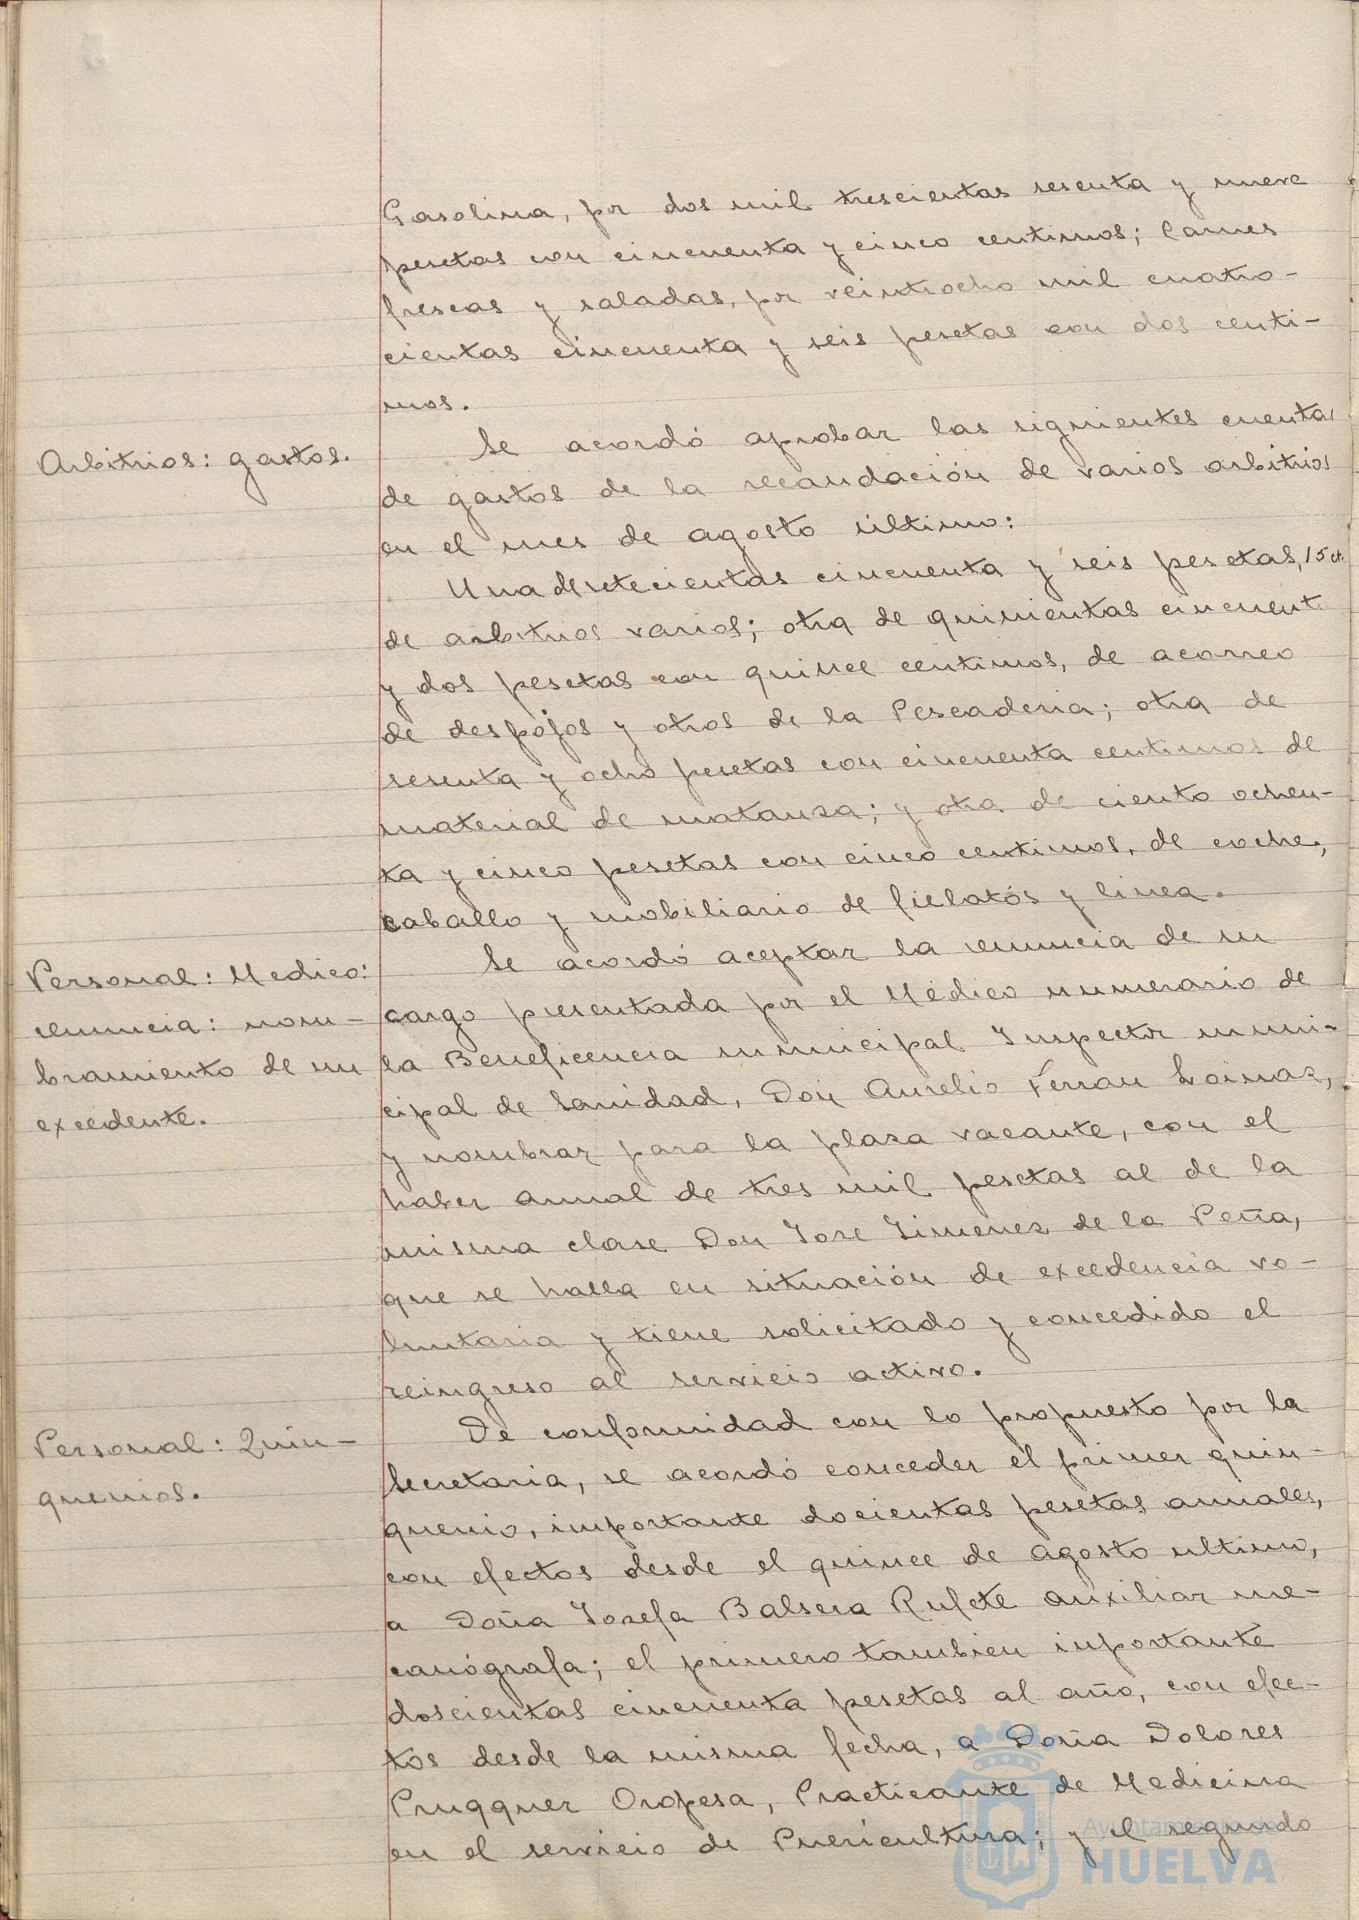 Gasolina, por dos mil trescientas sesenta y nueve
pesetas con cincuenta y cinco centimos; Carnes
frescas y saladas, por veintiocho mil cuatro-
cientas cincuenta y seis pesetas con dos centi-
mos.
Arbitrios: gastos.
Se acordó aprobar las siguientes cuentas
de gastos de la recaudación de varios arbitrios
en el mes de agosto último:
Una de setecientas cincuenta y seis pesetas, 15 ct.
de arbitrios varios; otra de quinientas cincuenta
y dos pesetas con quince centimos, de acarreo
de despojos y otros de la Pescaderia; otra de
sesenta y ocho pesetas con cincuenta centimos de
material de matanza; y otra de ciento ochen-
ta y cinco pesetas con cinco centimos, de coche,
caballo y mobiliario de fielatos y linea.
Personal: Medico:
renuncia: nom-
bramiento de un
excedente.
Se acordó aceptar la renuncia de su
cargo presentada por el Médico numerario de
la Beneficencia municipal Inspector muni-
cipal de Sanidad, Don Aurelio Ferran Loinaz,
y nombrar para la plaza vacante, con el
haber anual de tres mil pesetas al de la
misma clase Don Jose Jimenez de la Peña,
que se halla en situación de excedencia vo-
luntaria y tiene solicitado y concedido el
reingreso al servicio activo.
Personal: Quin-
quenios.
De conformidad con lo propuesto por la
Secretaria, se acordó conceder el primer quin-
quenio, importante docientas pesetas anuales,
con efectos desde el quince de agosto ultimo,
a Doña Josefa Balsera Rufete auxiliar me-
canógrafa; el primero tambien importante
doscientas cincuenta pesetas al año, con efec-
tos desde la misma fecha, a Doña Dolores
Prugquer Oropesa, Practicante de Medicina
en el servicio de Puericultura; y el segundo
Ayuntamiento de
HUELVA